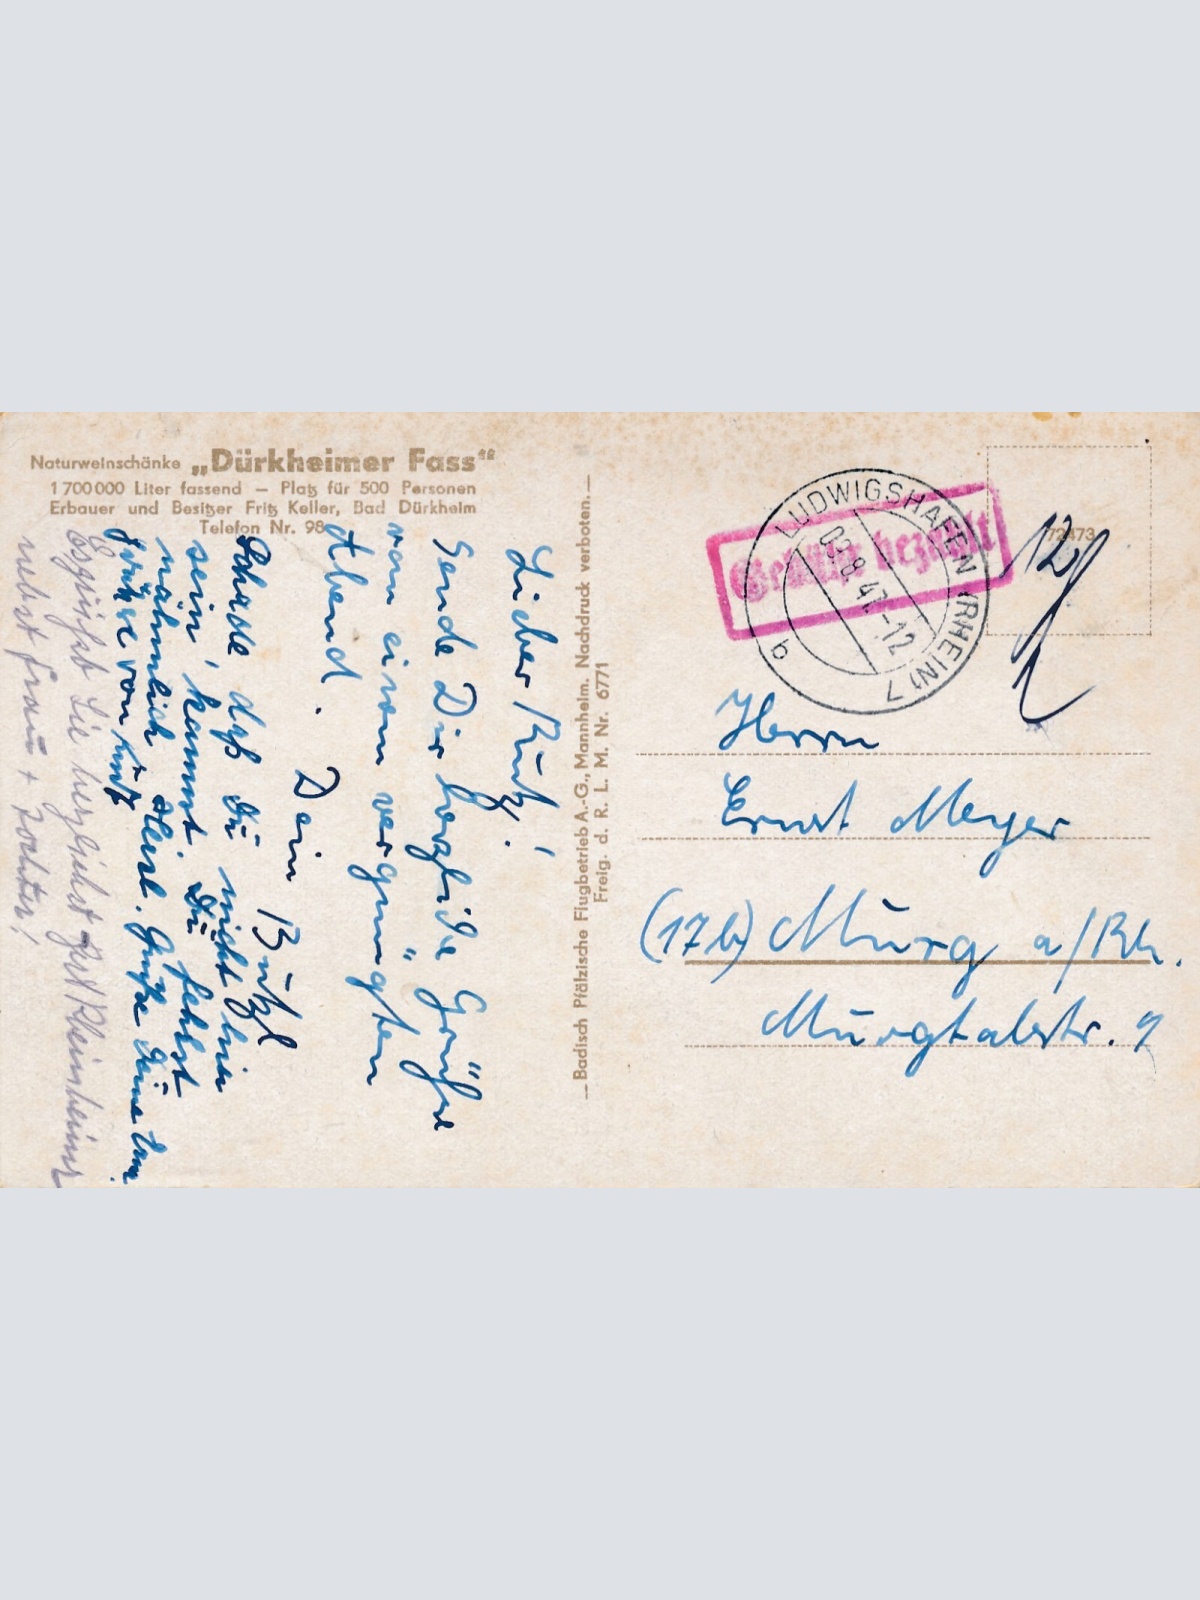 Naturweinschänke „Dürkheimer Fass“
1 700 000 Liter fassend — Platz für 500 Personen
Erbauer und Besitzer Fritz Keller, Bad Dürkheim
Telefon Nr. 98
Lieber
Sende Dir herzliche Grüße
von einem vergnügten
Abend. Dein
Schade daß Du nicht hier
sein kannst. Du fehlst
nämlich Herzl. Grüße Deine
Grüße von
Es grüßt Sie herzlichst
nebst Frau + Tochter!
— Badisch Pfälzische Flugbetrieb A.-G., Mannheim. Nachdruck verboten. —
Freig. d. R. L. M. Nr. 6771
Gebühr bezahlt
LUDWIGSHAFEN (RHEIN) 7
03.8.47.-12
b
72473
12
Herrn
Ernst Meyer
(17b) Murg a/Rh.
Murgtalstr. 9